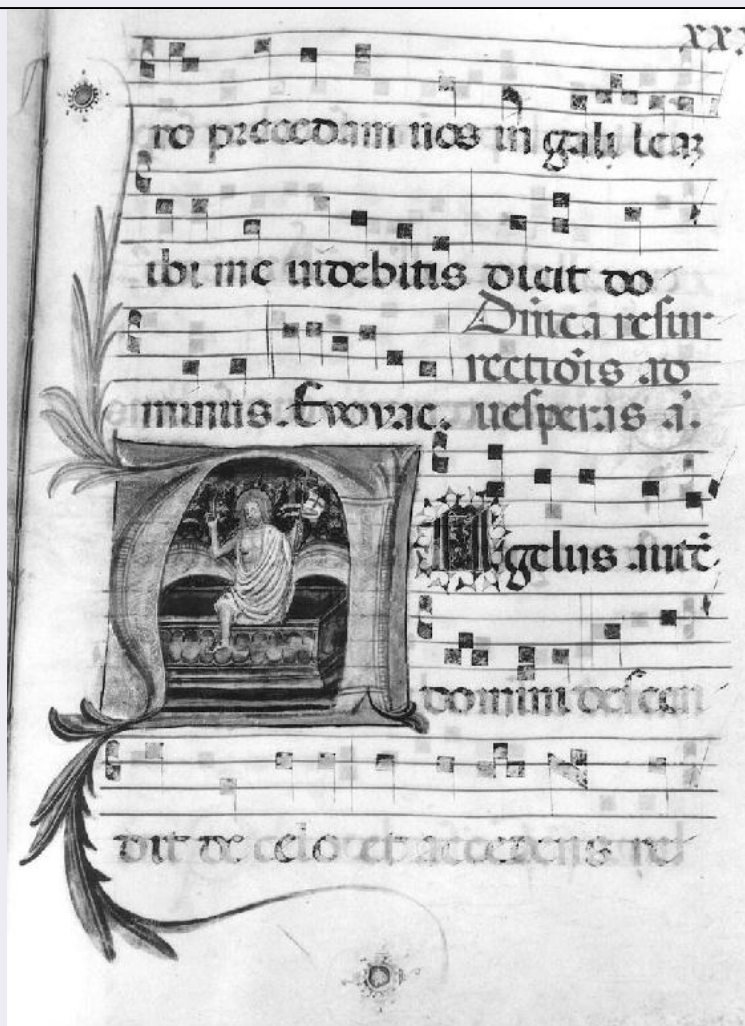 xxx
ro precedam uos in gali leaz
ibi me uidebitis dicit do
Dnica resur
rectiois ad
minus. Evovae. uesperas a.
Angelus aute
domini descen
dit de celo et accedens rel